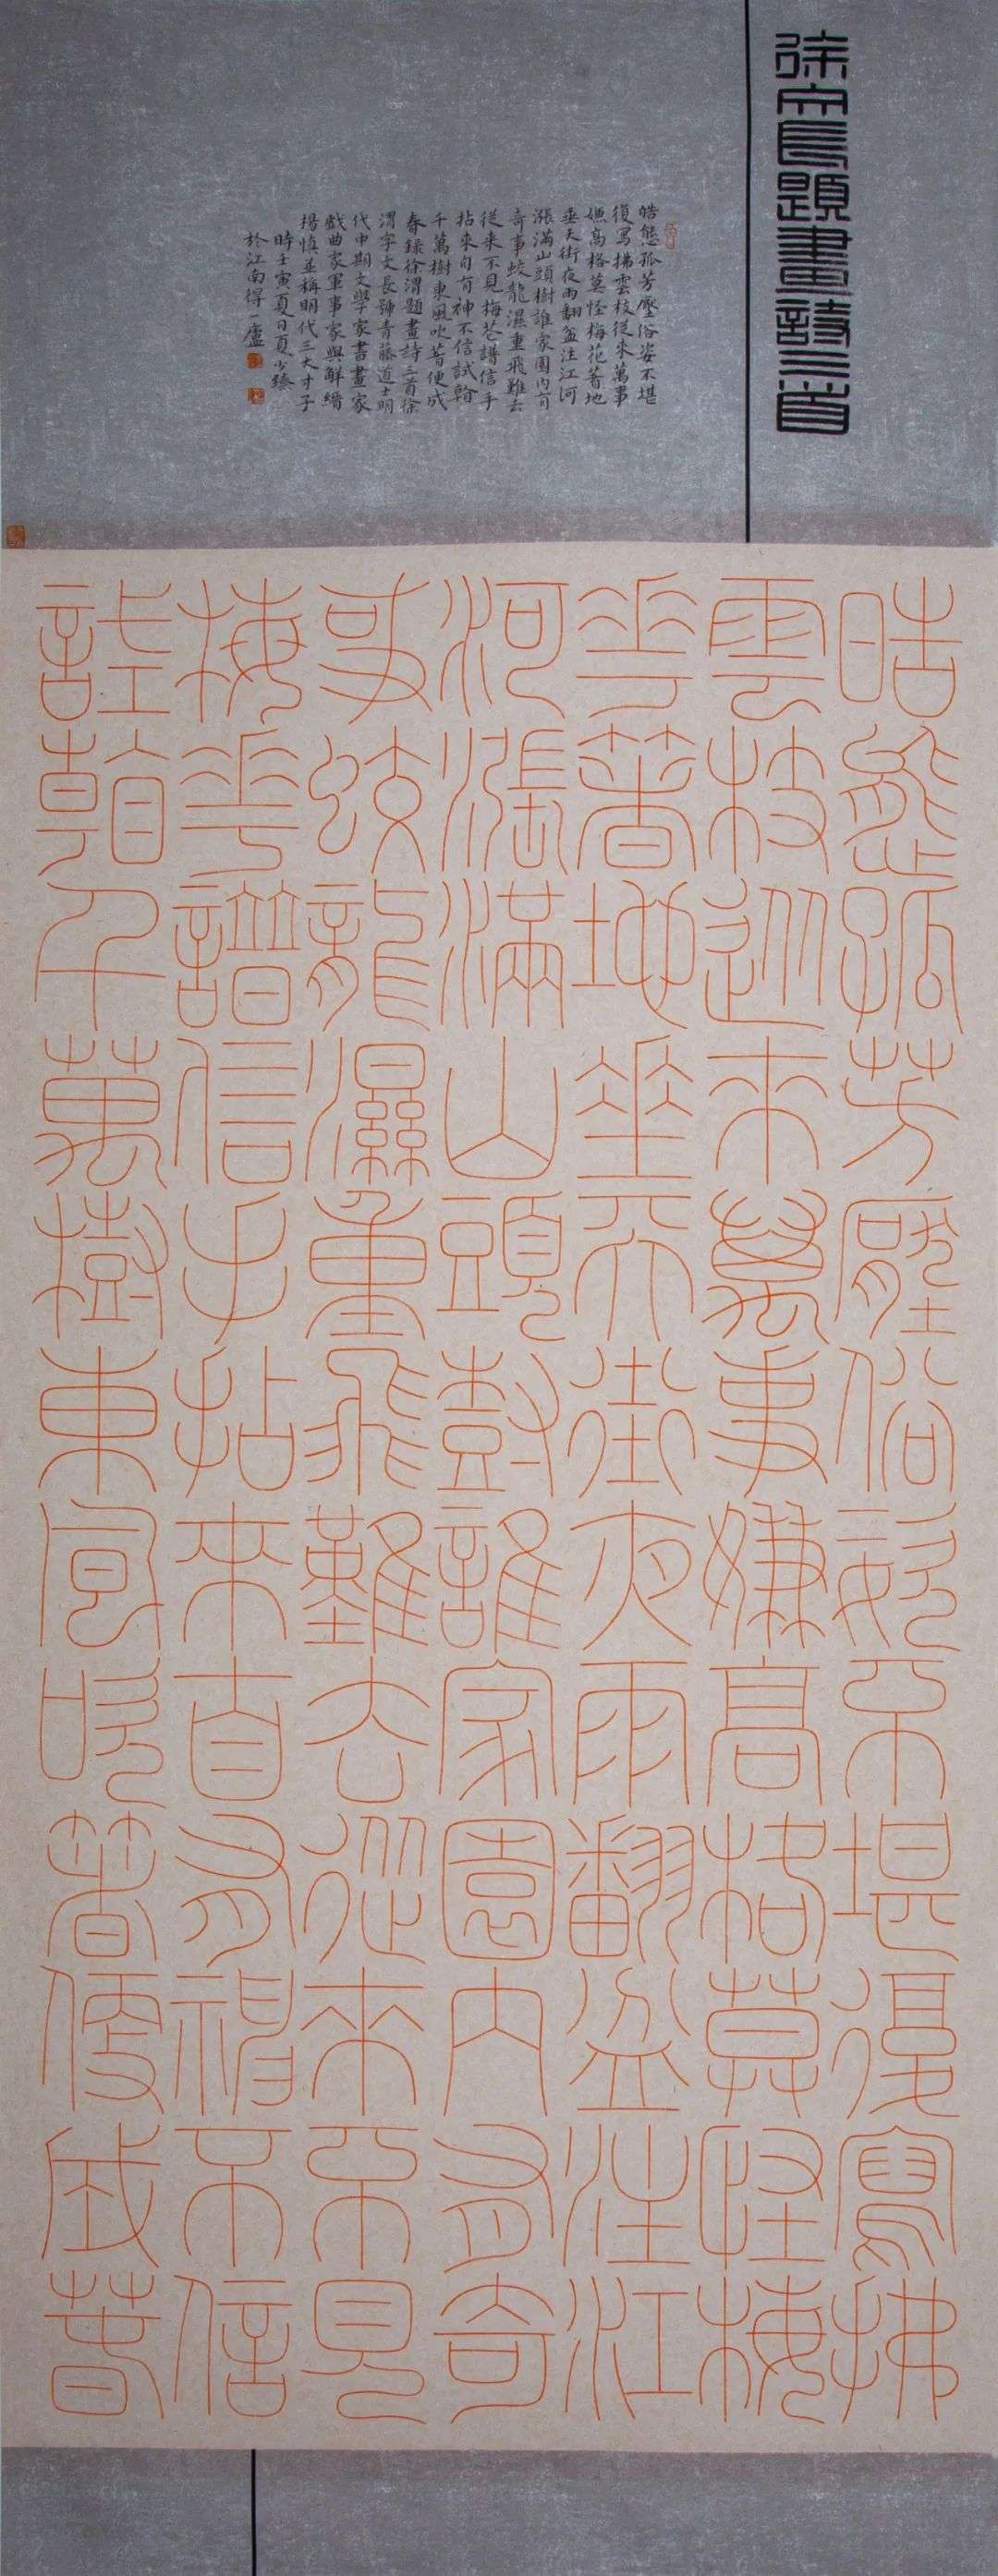 徐文長題畫詩三首
皓態孤芳壓俗姿不堪
復寫拂雲枝從來萬事
嫌高格莫怪梅花著地
垂天街夜雨翻盆注江河
漲滿山頭樹誰家園內有
奇事蛟龍濕重飛難去
從來不見梅花譜信手
拈來自有神不信試看
千萬樹東風吹著便成
春錄徐渭題畫詩三首徐
渭字文長號青藤道士明
代中期文學家書畫家
戲曲家軍事家與解縉
楊慎並稱明代三大才子
時壬寅夏日夏少臻
於江南得一廬
皓態孤芳壓俗姿不堪復寫拂
雲枝從來萬事嫌高格莫怪梅
花著地垂天街夜雨翻盆注江
河漲滿山頭樹誰家園內有奇
事蛟龍濕重飛難去從來不見
梅花譜信手拈來自有神不信
試看千萬樹東風吹著便成春